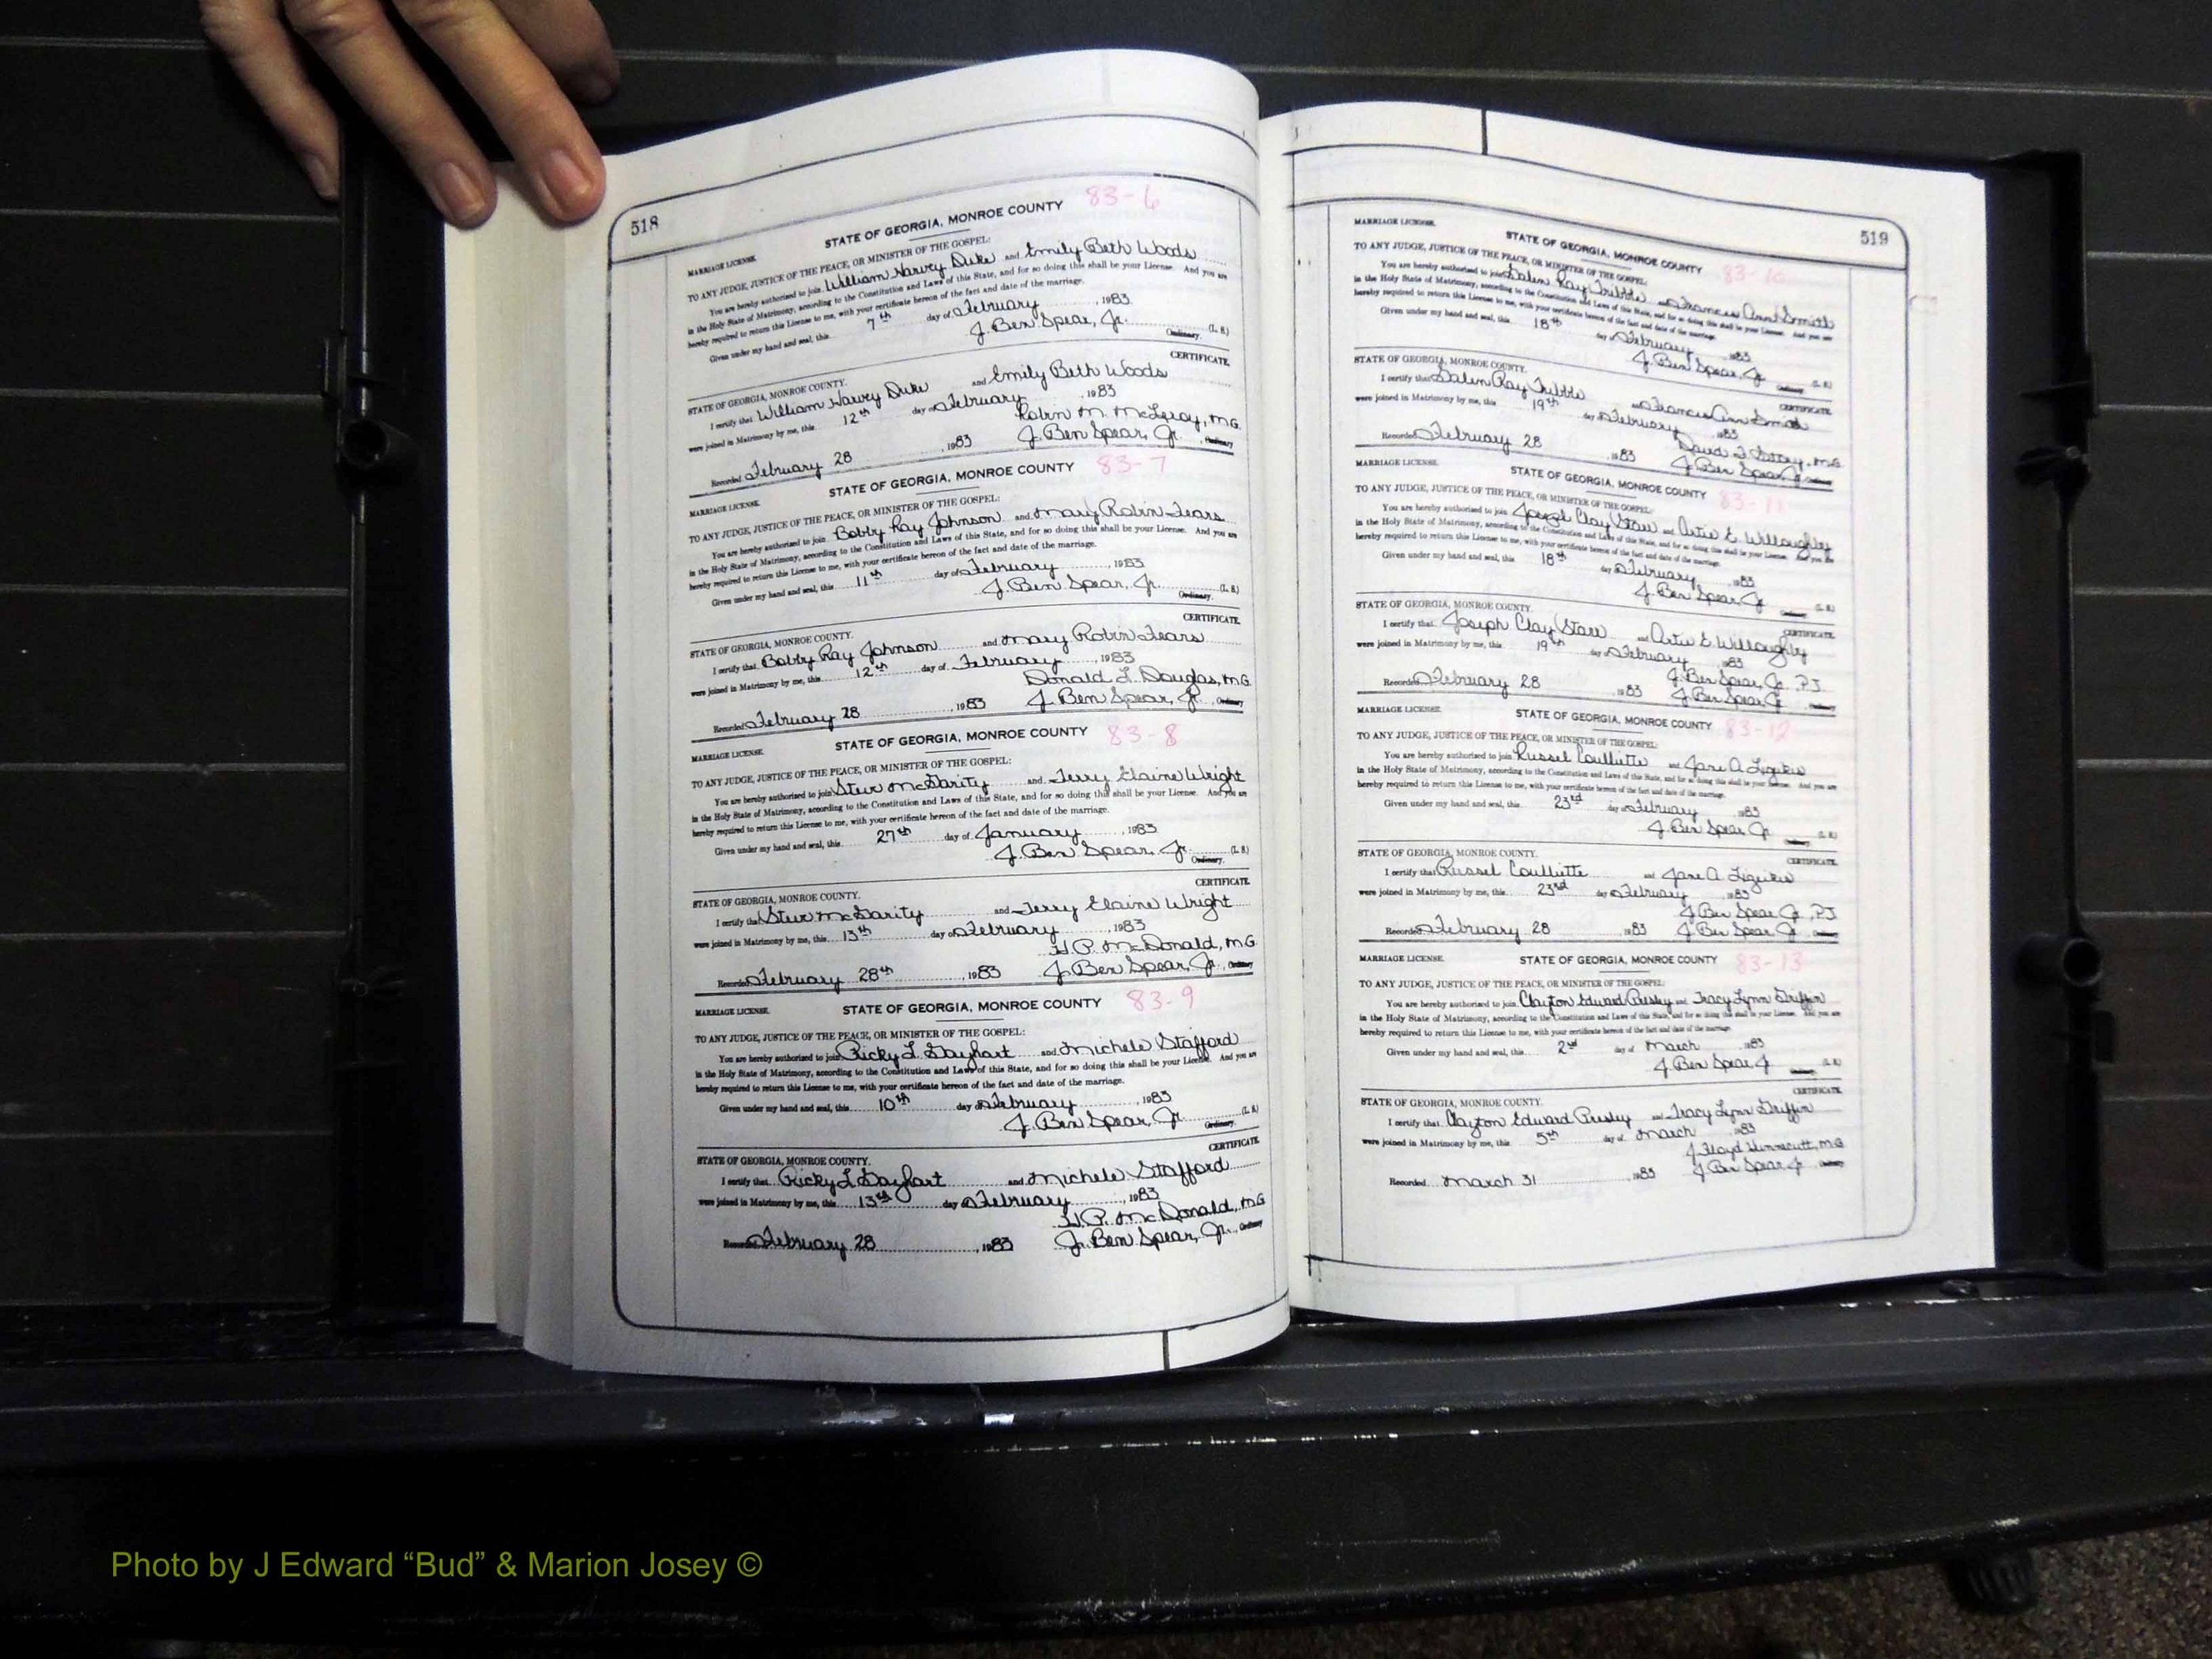 518
83-6
STATE OF GEORGIA, MONROE COUNTY
MARRIAGE LICENSE.
TO ANY JUDGE, JUSTICE OF THE PEACE, OR MINISTER OF THE GOSPEL:
You are hereby authorised to join William Harvey Duke and Emily Beth Woods
in the Holy State of Matrimony, according to the Constitution and Laws of this State, and for so doing this shall be your License. And you are
hereby required to return this License to me, with your certificate hereon of the fact and date of the marriage.
Given under my hand and seal, this 7th day of February, 1983
J. Ben Spear, Jr. (L. S.)
Ordinary.
CERTIFICATE
STATE OF GEORGIA, MONROE COUNTY.
I certify that William Harvey Duke and Emily Beth Woods
were joined in Matrimony by me, this 12th day of February, 1983
Robin M. McLeroy, M.G.
Recorded February 28, 1983 J. Ben Spear, Jr., Ordinary
STATE OF GEORGIA, MONROE COUNTY 83-7
MARRIAGE LICENSE.
TO ANY JUDGE, JUSTICE OF THE PEACE, OR MINISTER OF THE GOSPEL:
You are hereby authorised to join Bobby Ray Johnson and Mary Robin Fears
in the Holy State of Matrimony, according to the Constitution and Laws of this State, and for so doing this shall be your License. And you are
hereby required to return this License to me, with your certificate hereon of the fact and date of the marriage.
Given under my hand and seal, this 11th day of February, 1983
J. Ben Spear, Jr. (L. S.)
Ordinary.
CERTIFICATE
STATE OF GEORGIA, MONROE COUNTY.
I certify that Bobby Ray Johnson and Mary Robin Fears
were joined in Matrimony by me, this 12th day of February, 1983
Donald L. Douglas, M.G.
Recorded February 28, 1983 J. Ben Spear, Jr., Ordinary
STATE OF GEORGIA, MONROE COUNTY 83-8
MARRIAGE LICENSE.
TO ANY JUDGE, JUSTICE OF THE PEACE, OR MINISTER OF THE GOSPEL:
You are hereby authorised to join Steve McGarity and Terry Elaine Wright
in the Holy State of Matrimony, according to the Constitution and Laws of this State, and for so doing this shall be your License. And you are
hereby required to return this License to me, with your certificate hereon of the fact and date of the marriage.
Given under my hand and seal, this 27th day of January, 1983
J. Ben Spear, Jr. (L. S.)
Ordinary.
CERTIFICATE
STATE OF GEORGIA, MONROE COUNTY.
I certify that Steve McGarity and Terry Elaine Wright
were joined in Matrimony by me, this 13th day of February, 1983
H.P. McDonald, M.G.
Recorded February 28th, 1983 J. Ben Spear, Jr., Ordinary
STATE OF GEORGIA, MONROE COUNTY 83-9
MARRIAGE LICENSE.
TO ANY JUDGE, JUSTICE OF THE PEACE, OR MINISTER OF THE GOSPEL:
You are hereby authorised to join Ricky L. Gayhart and Michele Stafford
in the Holy State of Matrimony, according to the Constitution and Laws of this State, and for so doing this shall be your License. And you are
hereby required to return this License to me, with your certificate hereon of the fact and date of the marriage.
Given under my hand and seal, this 10th day of February, 1983
J. Ben Spear, Jr. (L. S.)
Ordinary.
CERTIFICATE
STATE OF GEORGIA, MONROE COUNTY.
I certify that Ricky L Gayhart and Michele Stafford
were joined in Matrimony by me, this 13th day of February, 1983
H.P. McDonald, M.G.
Recorded February 28, 1983 J. Ben Spear, Jr., Ordinary
519
MARRIAGE LICENSE.
STATE OF GEORGIA, MONROE COUNTY 83-10
TO ANY JUDGE, JUSTICE OF THE PEACE, OR MINISTER OF THE GOSPEL:
You are hereby authorised to join Galen Ray Tribble and Frances Ann Smith
in the Holy State of Matrimony, according to the Constitution and Laws of this State, and for so doing this shall be your License. And you are
hereby required to return this License to me, with your certificate hereon of the fact and date of the marriage.
Given under my hand and seal, this 18th day of February, 1983
J. Ben Spear, Jr (L. S.)
Ordinary.
STATE OF GEORGIA, MONROE COUNTY. CERTIFICATE
I certify that Galen Ray Tribble and Frances Ann Smith
were joined in Matrimony by me, this 19th day of February, 1983
David M.G.
Recorded February 28, 1983 J. Ben Spear, Jr
MARRIAGE LICENSE.
STATE OF GEORGIA, MONROE COUNTY 83-11
TO ANY JUDGE, JUSTICE OF THE PEACE, OR MINISTER OF THE GOSPEL:
You are hereby authorised to join Joseph Clay Starr and Artie E. Willoughby
in the Holy State of Matrimony, according to the Constitution and Laws of this State, and for so doing this shall be your License. And you are
hereby required to return this License to me, with your certificate hereon of the fact and date of the marriage.
Given under my hand and seal, this 18th day of February, 1983
J. Ben Spear, Jr (L. S.)
Ordinary.
STATE OF GEORGIA, MONROE COUNTY. CERTIFICATE
I certify that Joseph Clay Starr and Artie E. Willoughby
were joined in Matrimony by me, this 19th day of February, 1983
J. Ben Spear, Jr., P.J.
Recorded February 28, 1983 J. Ben Spear, Jr
MARRIAGE LICENSE.
STATE OF GEORGIA, MONROE COUNTY 83-12
TO ANY JUDGE, JUSTICE OF THE PEACE, OR MINISTER OF THE GOSPEL:
You are hereby authorised to join Russel Coulliette and Jane A.
in the Holy State of Matrimony, according to the Constitution and Laws of this State, and for so doing this shall be your License. And you are
hereby required to return this License to me, with your certificate hereon of the fact and date of the marriage.
Given under my hand and seal, this 23rd day of February, 1983
J. Ben Spear, Jr. (L. S.)
Ordinary.
STATE OF GEORGIA, MONROE COUNTY. CERTIFICATE
I certify that Russel Coulliette and Jane A.
were joined in Matrimony by me, this 23rd day of February, 1983
J. Ben Spear Jr., P.J.
Recorded February 28, 1983 J. Ben Spear Jr.
MARRIAGE LICENSE. STATE OF GEORGIA, MONROE COUNTY 83-13
TO ANY JUDGE, JUSTICE OF THE PEACE, OR MINISTER OF THE GOSPEL:
You are hereby authorised to join Clayton Edward Presley and Tracy Lynn Griffin
in the Holy State of Matrimony, according to the Constitution and Laws of this State, and for so doing this shall be your License. And you are
hereby required to return this License to me, with your certificate hereon of the fact and date of the marriage.
Given under my hand and seal, this 2nd day of March, 1983
J. Ben Spear Jr (L. S.)
Ordinary.
CERTIFICATE
STATE OF GEORGIA, MONROE COUNTY.
I certify that Clayton Edward Presley and Tracy Lynn Griffin
were joined in Matrimony by me, this 5th day of March 1983
J. Floyd Hunnicutt, M.G.
Recorded March 31, 1983 J. Ben Spear Jr. Ordinary
Photo by J Edward “Bud” & Marion Josey ©